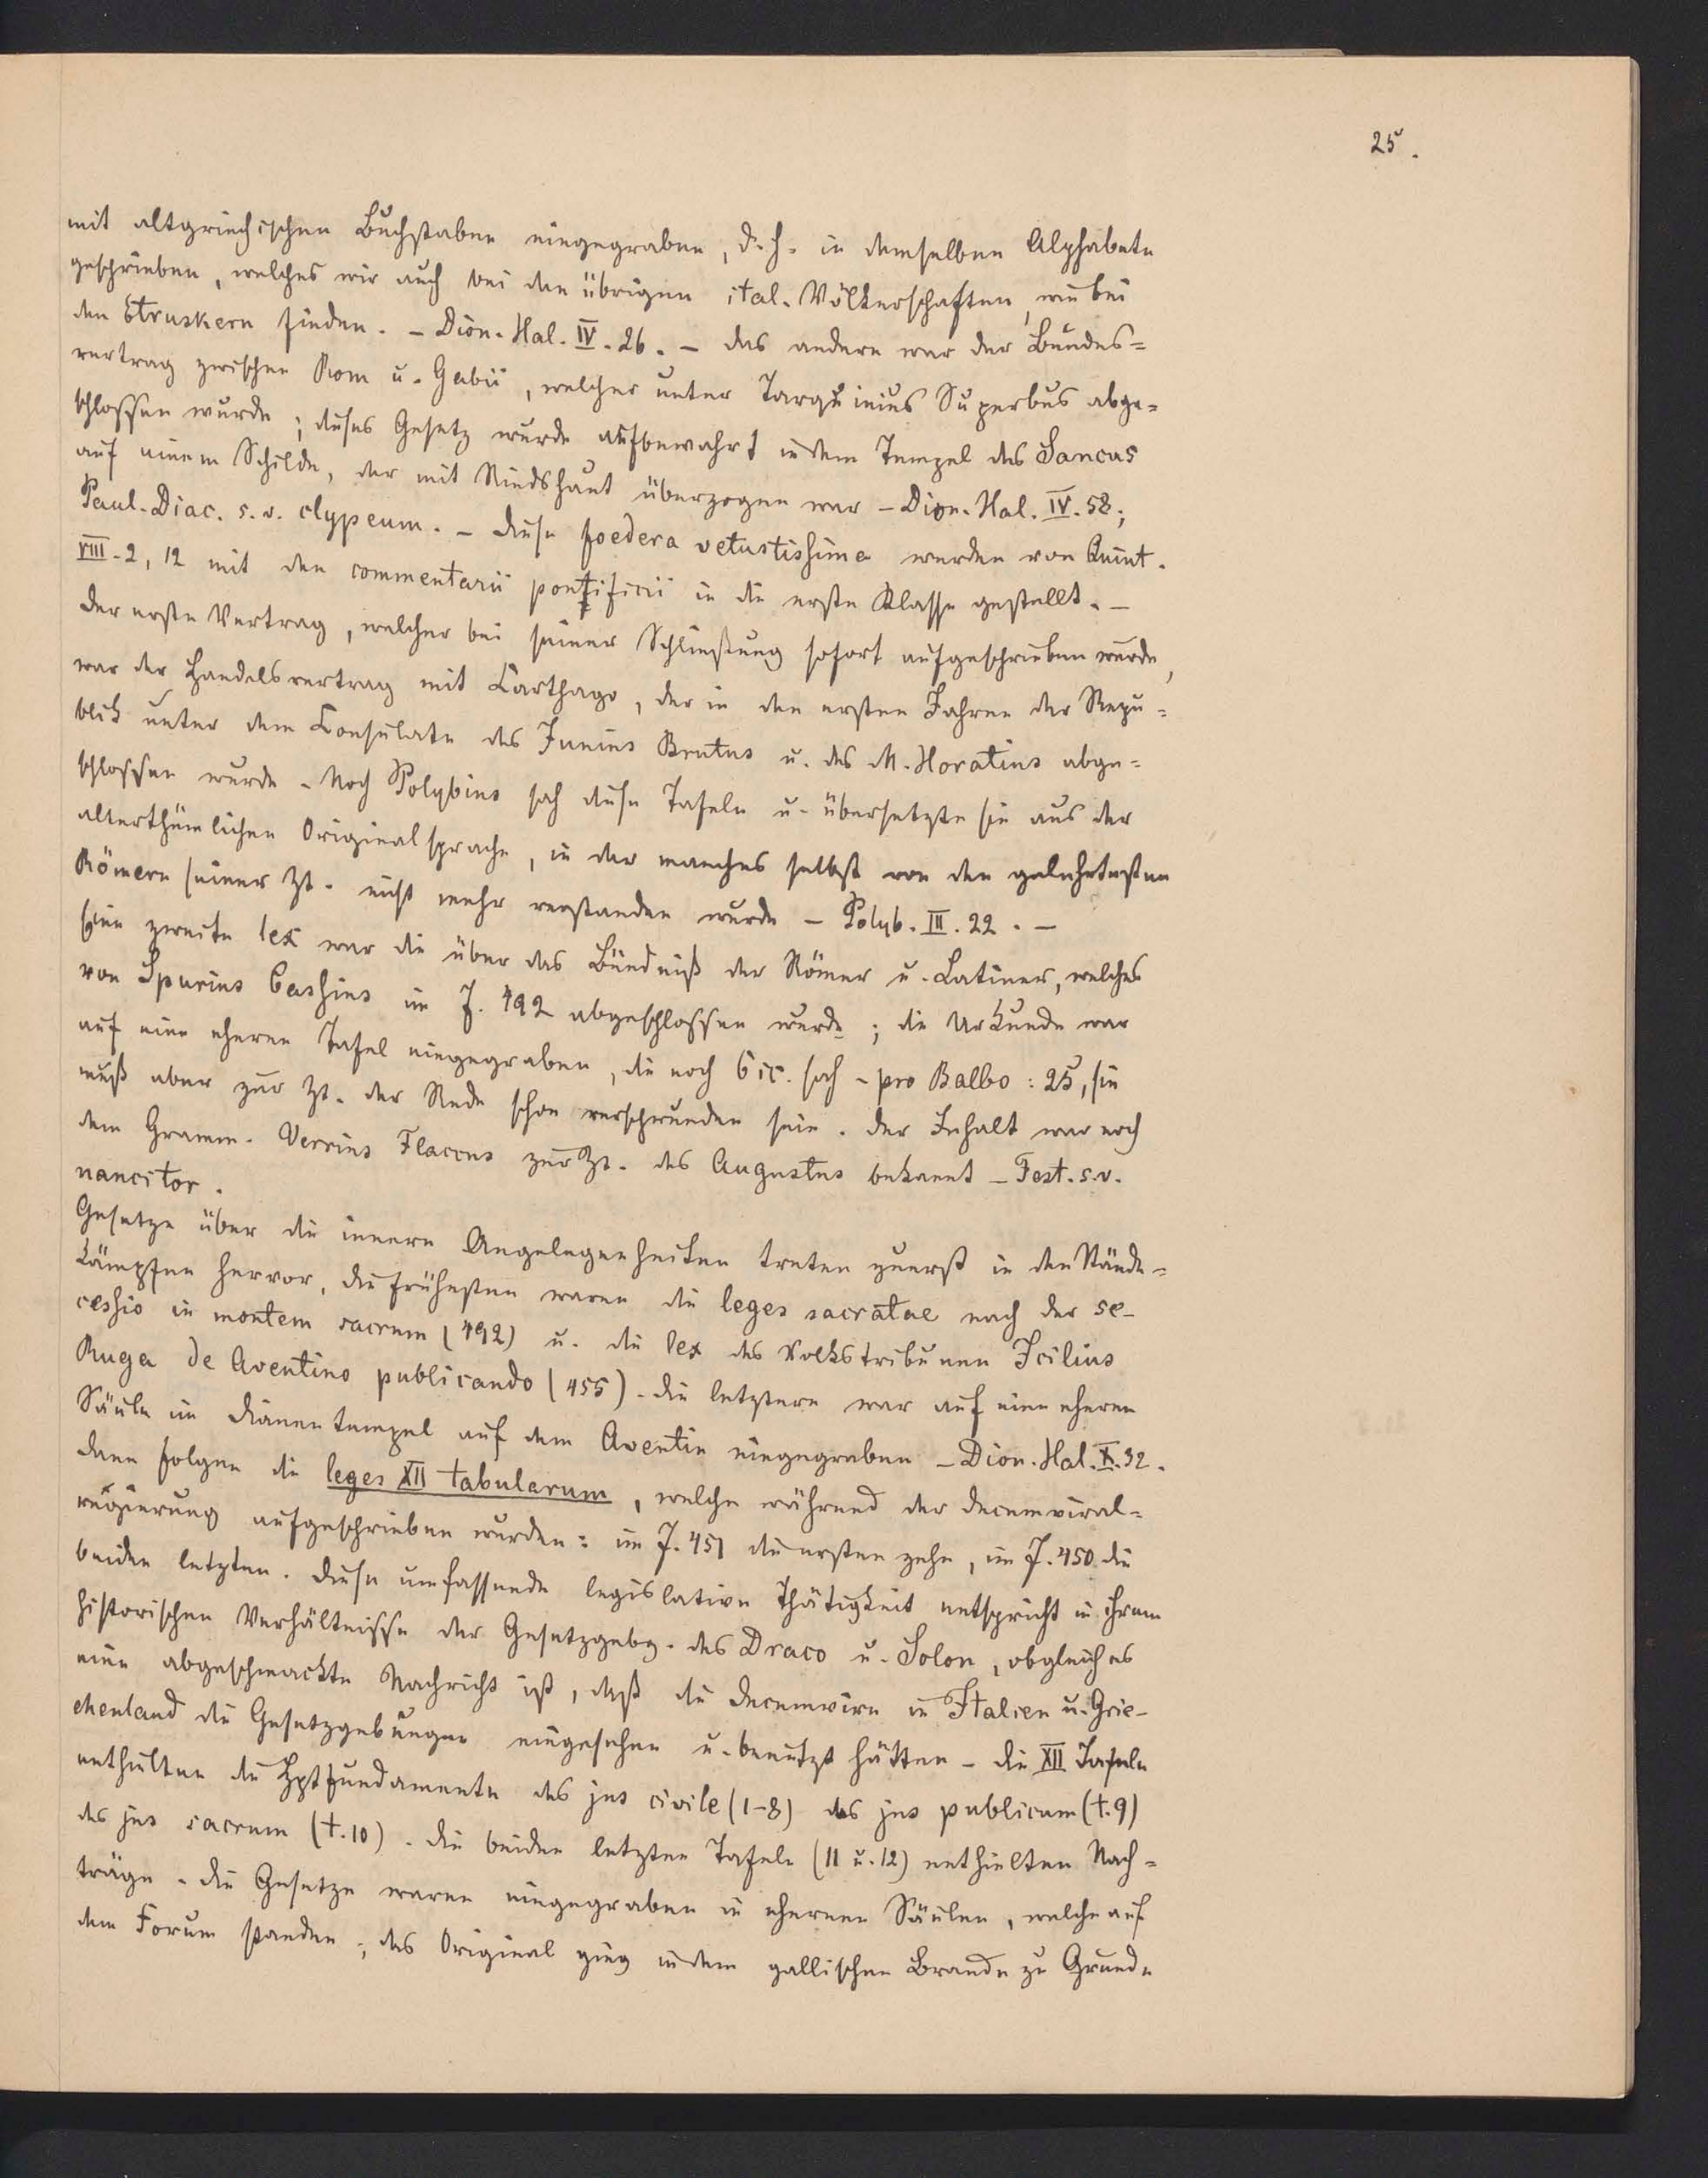 25.
mit altgriechischen Buchstaben eingegraben, d. h. in demselben Alphabete
geschrieben, welches wir auch bei den übrigen ital. Völkerschaften, wie bei
den Etruskern finden. – Dion. Hal. IV. 26. – das andere war der Bundes=
vertrag zwischen Rom u. Gabii, welcher unter Tarquinius Superbus abge=
schlossen wurde; dieses Gesetz wurde aufbewahrt in dem Tempel des Sancus
auf einem Schilde, der mit Rindshaut überzogen war – Dion. Hal. IV. 58;
Paul. Diac. s. v. clypeum. – diese foedera vetustissima werden von Quint.
VIII. 2, 12 mit den commentarii pontificii in die erste Klasse gestellt. –
der erste Vertrag, welcher bei seiner Schließung sofort aufgeschrieben wurde,
war der Handelsvertrag mit Carthago, der in den ersten Jahren der Repu=
blik unter dem Consulate des Junius Brutus u. des M. Horatius abge=
schlossen wurde. Noch Polybius sah diese Tafeln u. übersetzte sie aus der
alterthümlichen Originalsprache, in der manches selbst von den gelehrtesten
Römern seiner Zt. nicht mehr verstanden wurde – Polyb. III. 22. –
Eine zweite lex war die über das Bündniß der Römer u. Latiner, welches
von Spurius Cassius im J. 492 abgeschlossen wurde; die Urkunde war
auf eine eherne Tafel eingegraben, die noch Cic. sah – pro Balbo: 25, sie
muß aber zur Zt. der Rede schon verschwunden sein. der Inhalt war noch
dem Gramm. Verrius Flaccus zur Zt. des Augustus bekannt – Fest. s. v.
nancitor.
Gesetze über die innern Angelegenheiten treten zuerst in den Stände=
kämpfen hervor, die frühesten waren die leges sacratae nach der se-
cessio in montem sacrum (492) u. die lex des Volkstribunen Icilius
Ruga de Aventino publicando (455). die letztere war auf eine eherne
Säule im Dianentempel auf dem Aventin eingegraben – Dion. Hal. X. 32.
dann folgen die leges XII tabularum, welche während der Decemviral=
regierung aufgeschrieben wurden: im J. 451 die ersten zehn, im J. 450 die
beiden letzten. diese umfassende legislative Thätigkeit entspricht in ihrem
historischen Verhältnisse der Gesetzgebg. des Draco u. Solon, obgleich es
eine abgeschmackte Nachricht ist, daß die Decemvirn in Italien u. Grie-
chenland die Gesetzgebungen eingesehen u. benutzt hätten – die XII Tafeln
enthielten die Hptfundamente des jus civile (1–8) des jus publicum (t. 9)
des jus sacrum (t. 10). die beiden letzten Tafeln (11 u. 12) enthielten Nach=
träge. die Gesetze waren eingegraben in eherne Säulen, welche auf
dem Forum standen; das Original ging in dem gallischen Brande zu Grunde